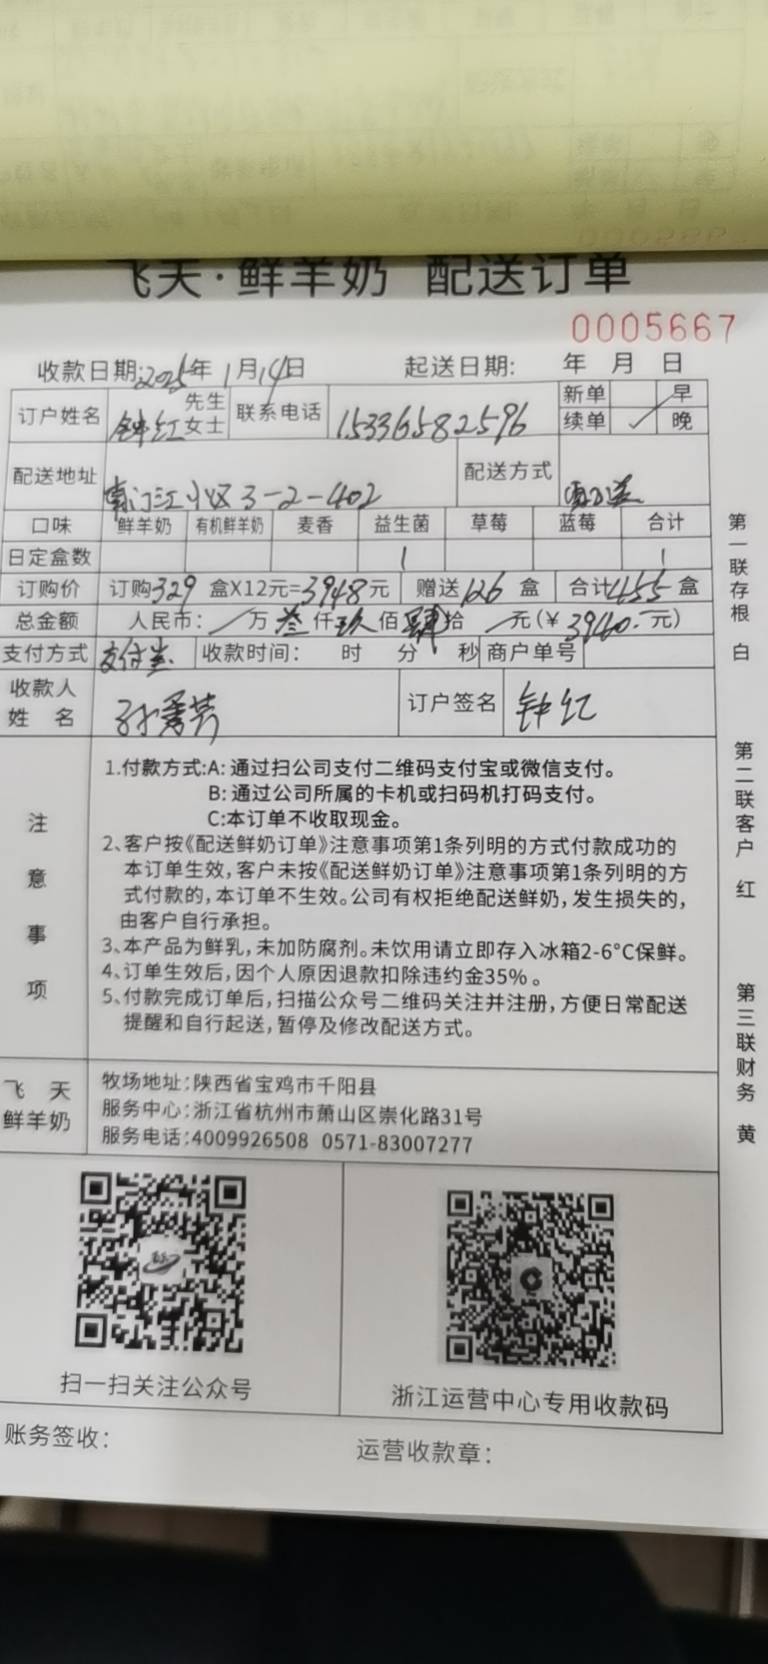 飞天·鲜羊奶 配送订单
0005667
收款日期:2025年1月14日 起送日期: 年 月 日
订户姓名 钟红 先生 女士 联系电话 15336582596 新单 早 续单 ✓ 晚
配送地址 南门江小区3-2-402 配送方式
口味 鲜羊奶 有机鲜羊奶 麦香 益生菌 草莓 蓝莓 合计
日定盒数 1 1
订购价 订购329 盒X12元=3948元 赠送126 盒 合计455 盒
总金额 人民币: / 万 叁 仟 玖 佰 肆 拾 / 元(¥3940.-元)
支付方式 支付宝 收款时间: 时 分 秒 商户单号
收款人 姓 名 孙秀芳 订户签名 钟红
注意事项
1.付款方式:A:通过扫公司支付二维码支付宝或微信支付。
B:通过公司所属的卡机或扫码机打码支付。
C:本订单不收取现金。
2、客户按《配送鲜奶订单》注意事项第1条列明的方式付款成功的
本订单生效,客户未按《配送鲜奶订单》注意事项第1条列明的方
式付款的,本订单不生效。公司有权拒绝配送鲜奶,发生损失的,
由客户自行承担。
3、本产品为鲜乳,未加防腐剂。未饮用请立即存入冰箱2-6°C保鲜。
4、订单生效后,因个人原因退款扣除违约金35%。
5、付款完成订单后,扫描公众号二维码关注并注册,方便日常配送
提醒和自行起送,暂停及修改配送方式。
飞 天 鲜羊奶
牧场地址:陕西省宝鸡市千阳县
服务中心:浙江省杭州市萧山区崇化路31号
服务电话:4009926508 0571-83007277
扫一扫关注公众号
浙江运营中心专用收款码
账务签收:
运营收款章:
第一联存根 白
第二联客户 红
第三联财务 黄